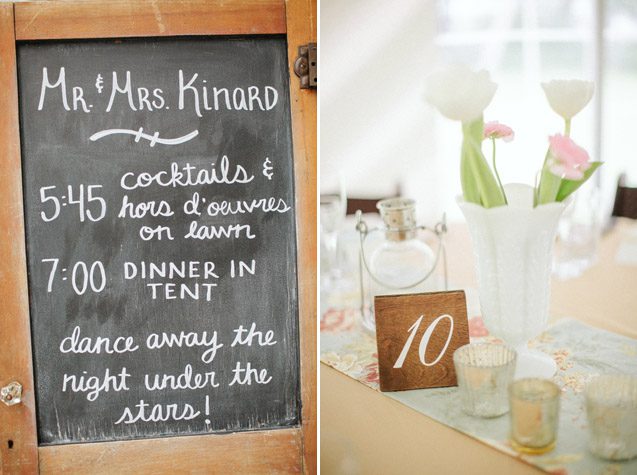 Mr. & Mrs. Kinard
5:45 cocktails &
hors d'oeuvres
on lawn
7:00 DINNER IN
TENT
dance away the
night under the
stars!
10